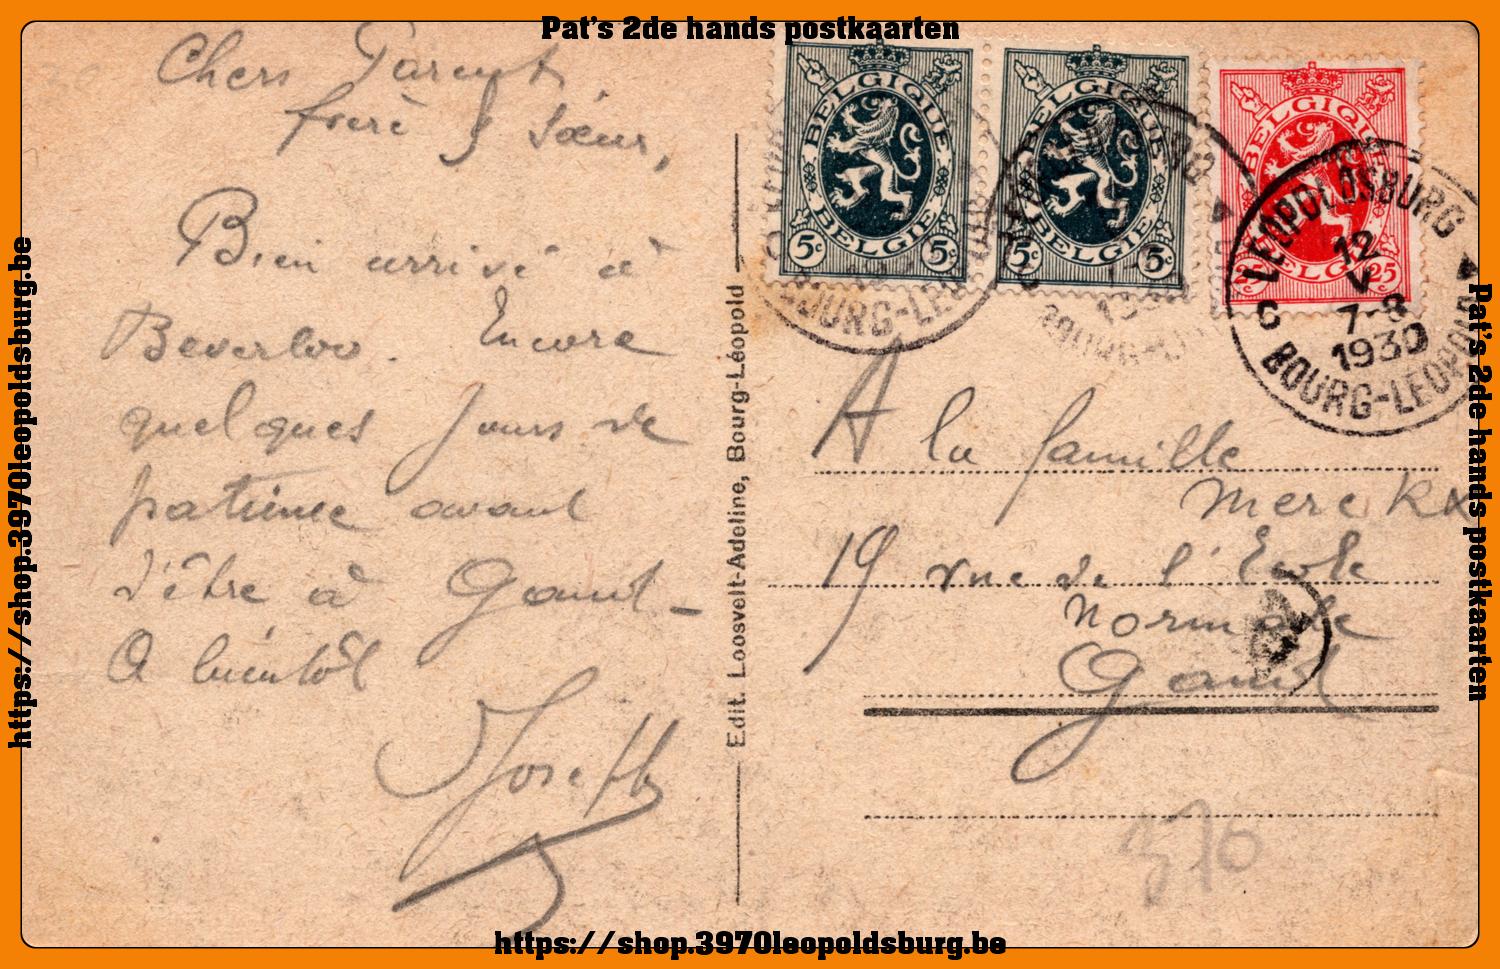 Pat's 2de hands postkaarten
https://shop.3970leopoldsburg.be
Chers Parents
frère & Sœur,
Bien arrivé à
Beverloo. Encore
quelques jours de
patience avant
d'être à Gand -
A bientôt
Joseph
Edit. Loosvelt-Adeline, Bourg-Léopold
BELGIQUE
BELGIE
5c 5c
BELGIQUE
BELGIE
5c 5c
BELGIQUE
BELGIE
25 25
BOURG-LE
1930
BOURG-
LEOPOLDSBURG
12
V
7-8
1930
C
BOURG-LEOPOLD
A la famille
Merckx
19 rue de l'Ecole
Normale
Gand
370
Pat's 2de hands postkaarten
https://shop.3970leopoldsburg.be